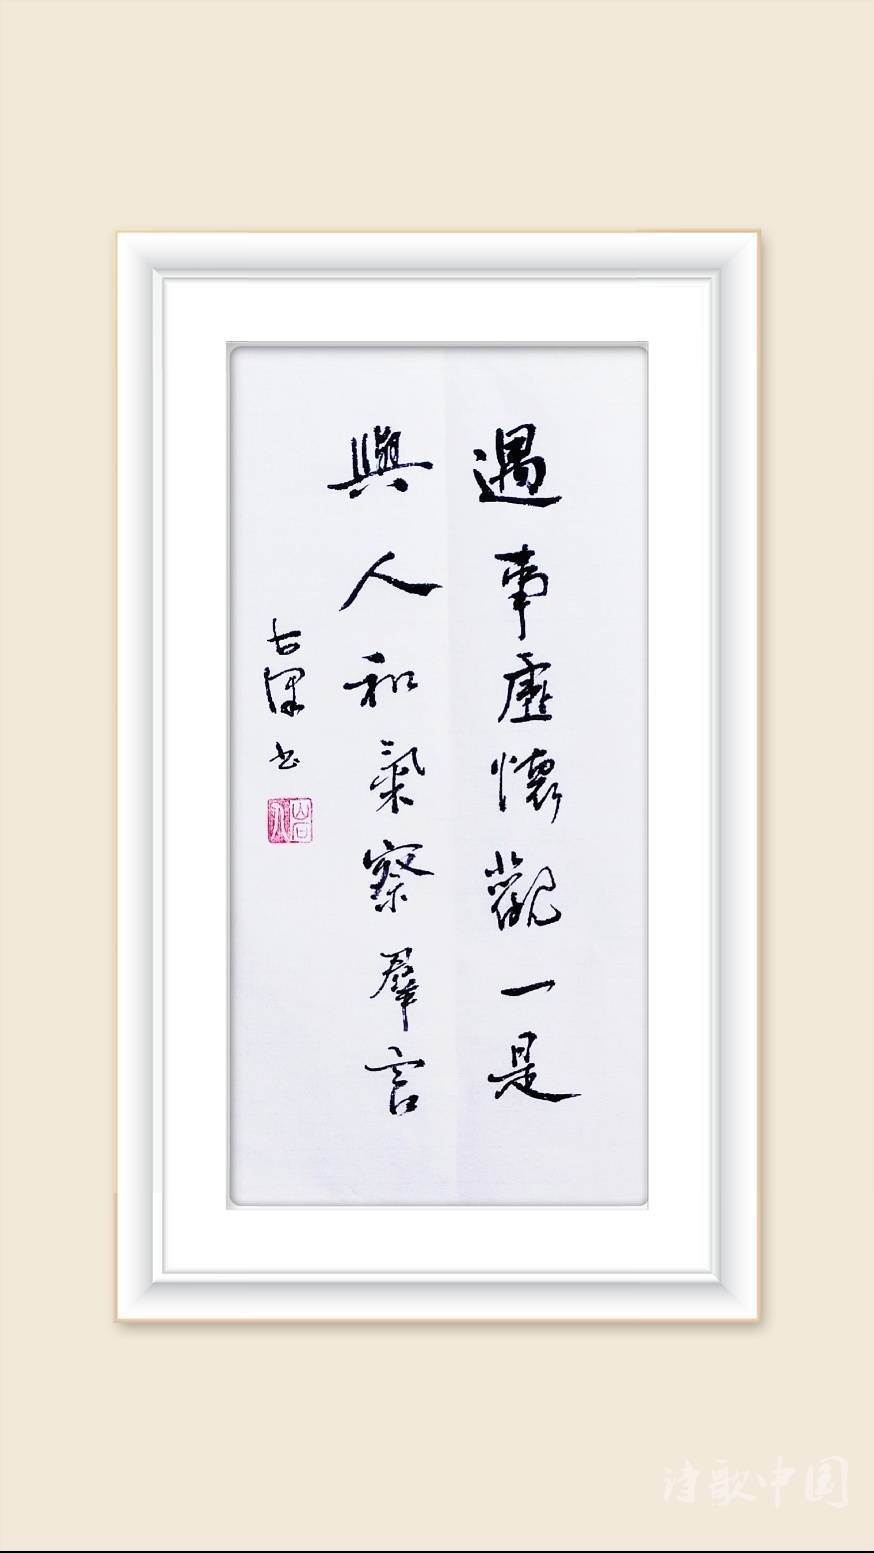 遇事虛懷觀一是
與人和氣察羣言
书
诗歌中国